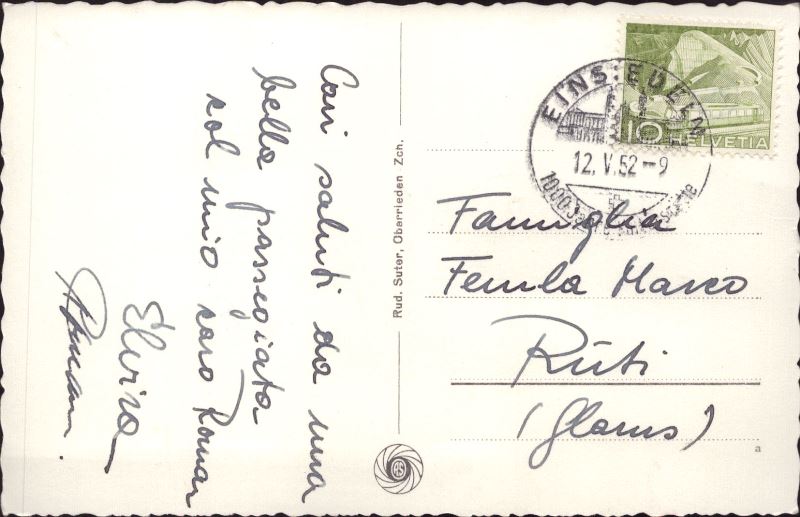 Cari saluti da una
bella passegiata
col mio caro Roman
Elvira
Roman.
Rud. Suter, Oberrieden Zch.
10 HELVETIA
EINSIEDELN
12. V. 52 - 9
Famiglia
Femla Marco
Rüti
(Glarus)
a